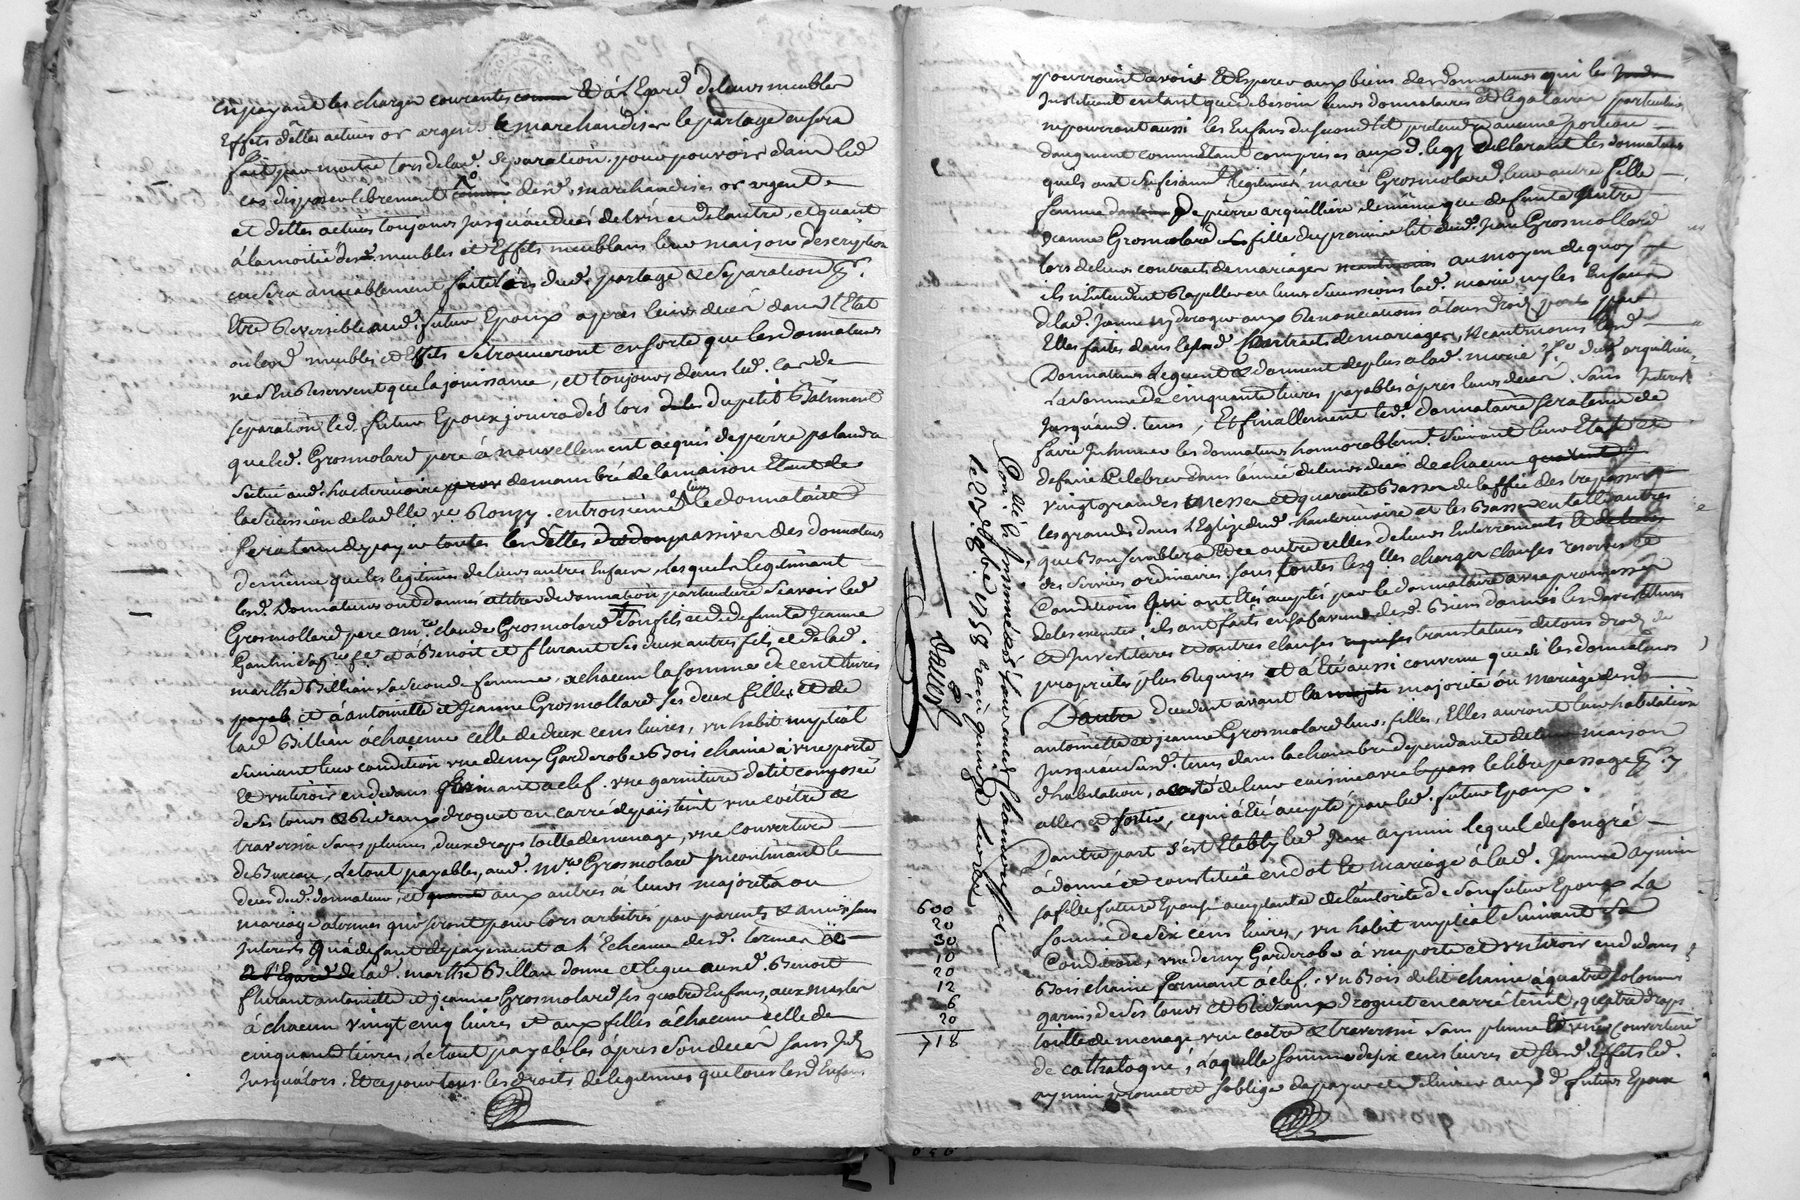 en payant les charges courantes et à l'Egard de leurs meubles
Effets dettes actives or argent & marchandises le partage en sera
fait par moitié lors de lad. separation pour pouvoir dans led
cas disposer librement desd. marchandises or argent
et dettes actives toujours jusqu'au decés de l'un et de l'autre, et quant
à la moitié desd. meubles et Effets meublans leur maison description
en sera amiablement faite lors dud. partage & separation pr.
Etre Reversible aud. futur Epoux apres leurs decés dans l'Etat
ou lesd meubles et Effets se trouveront en sorte que les donnateurs
ne s'En Reservent que la jouissance, et toujours dans led. cas de
separation led. futur Epoux jouira dés lors du petit Batiment
que led. Grosmolard pere à nouvellement acquis de pierre
situé aud. hauterivoire demambré de la maison Etant de
la sucession de la dlle ve. Ronzy. en troisieme lieu le donnataire
sera tenu de payer toutes les dettes passives des donnateurs
de même que les legitimes de leurs autres Enfans, lesquels legitimant
lesd. Donnateurs ont donné à titre de donnation particuliere sçavoir led
Grosmollard pere à me. claude Grosmolard son fils et de defunte Jeanne
Goutin sa fe et à Benoit et flurant ses deux autres fils, et de lad.
marthe Billian sa seconde femme, à chacun la somme de cent livres
et à antoinette et Jeanne Grosmollard ses deux filles et de
lad Billian à chacune celle de deux cens livres, un habit nuptial
suivant leur condition une demy Garderobe Bois chaine à une porte
Et un tiroir en dedans fermant à clef. une garniture de lit composée
de ses tours & Rideaux droguet en carré de païs teint une coëtre &
traversin sans plumes, deux draps toille de menage, une couverture
de Bureau, Le tout payables, aud. Mre. Grosmolard incontinant le
deces desd. donnateurs, et aux autres à leurs majorités ou
mariage à termes qui seront pour lors arbitrés par parents & amis sans
Interests qu'à defaut de payement à l'Echeance desd. termes
de lad. marthe Billian donne et legue auxd. Benoit
flurant antoinette et jeanne Grosmolard ses quatre Enfans, aux masles
à chacun vingt cinq livres et aux filles à chacune celle de
cinquante livres, Le tout payables après son decés sans Int.
jusqu'alors. Et ce pour tous les droits de legitimes que tous lesd Enfans
pourroient avoir Et Esperer aux biens des donnateurs qui les
Instituent en tant que de besoin leurs donnataires et legataires particuliers
ne pourront aussi les Enfans du second lit pretendre aucune portion
d'augment comme Etant comprises auxd. legs declarant les donnateurs
qu'ils ont suffisament legitimé marie Grosmolard leur autre fille
femme de pierre arquilliere de même que defunte autre
Jeanne Grosmolard fille du premier lit dud. Jean Grosmollard
lors de leurs contrats de mariages au moyen de quoy
ils n'entendent Rapeller en leurs sucessions lad. marie ny les Enfans
de lad. Jeanne ny deroger aux Renonciations à tous droits par
Elles faites dans lesd contrats de mariages, Neantmoins lesd
Donnateurs leguent & donnent de plus a lad. marie fe dud arquilliere
la somme de cinquante livres payables après leurs decés. sans Interest
jusqu'aud. tems, Et finallement led. donnataire sera tenu de
faire Inhumer les donnateurs honnorablemt. suivant leur Etat et
de faire Celebrer dans l'année de leurs decés de chacun
vingt grandes messes et quarante Basses de l'office des trepassés
les grandes dans l'Eglize dud. hauterivoire et les Basses en telle autres
que Bon semblera et ce outre celles de leurs Enterrements
des services ordinaires. sous toutes lesqlles charges clauses reserves &
Conditions qui ont Eté aceptés par le donnataire avec promesse
de les executer, ils ont faits en sa faveur desd. Biens donnés les devestitures
et Investitures et autres clauses translatives de tous droits de
proprieté plus Requises et à Eté aussi convenu que si les donnateurs
Decedent avant majorité ou mariage desd
antoinette et jeanne Grosmolard leurs filles, Elles auront leur habitation
jusqu'aud. tems dans la chambre dependante de maison
d'habitation, a coté de leur cuisine avec le libre passage pr. y
aller et sortir, ce qui à Eté accepté par led. futur Epoux.
D'autre part s'est Etably led Jean aymin lequel de son gré
à donné et constitué en dot & mariage à lad. Jeanne aymin
sa fille future Epouse aceptante de l'autorité de son futur Epoux La
somme de six cens livres, un habit nuptial suivant sa
Condition, une demy Garderobe à une porte et un tiroir en dedans
Bois chaine fermant à clef. un Bois de lit chaine à quatre Colonnes
garni de ses tours et Rideaux droguet en carré teint, quatre draps
toille de menage une coetre & traversin sans plume et une couverture
de cathalogne, Laquelle somme de six cens livres et susd. Effets led.
aymin promet et s'oblige de payer et delivrer auxd futurs Epoux
600
20
30
10
20
12
6
20
718